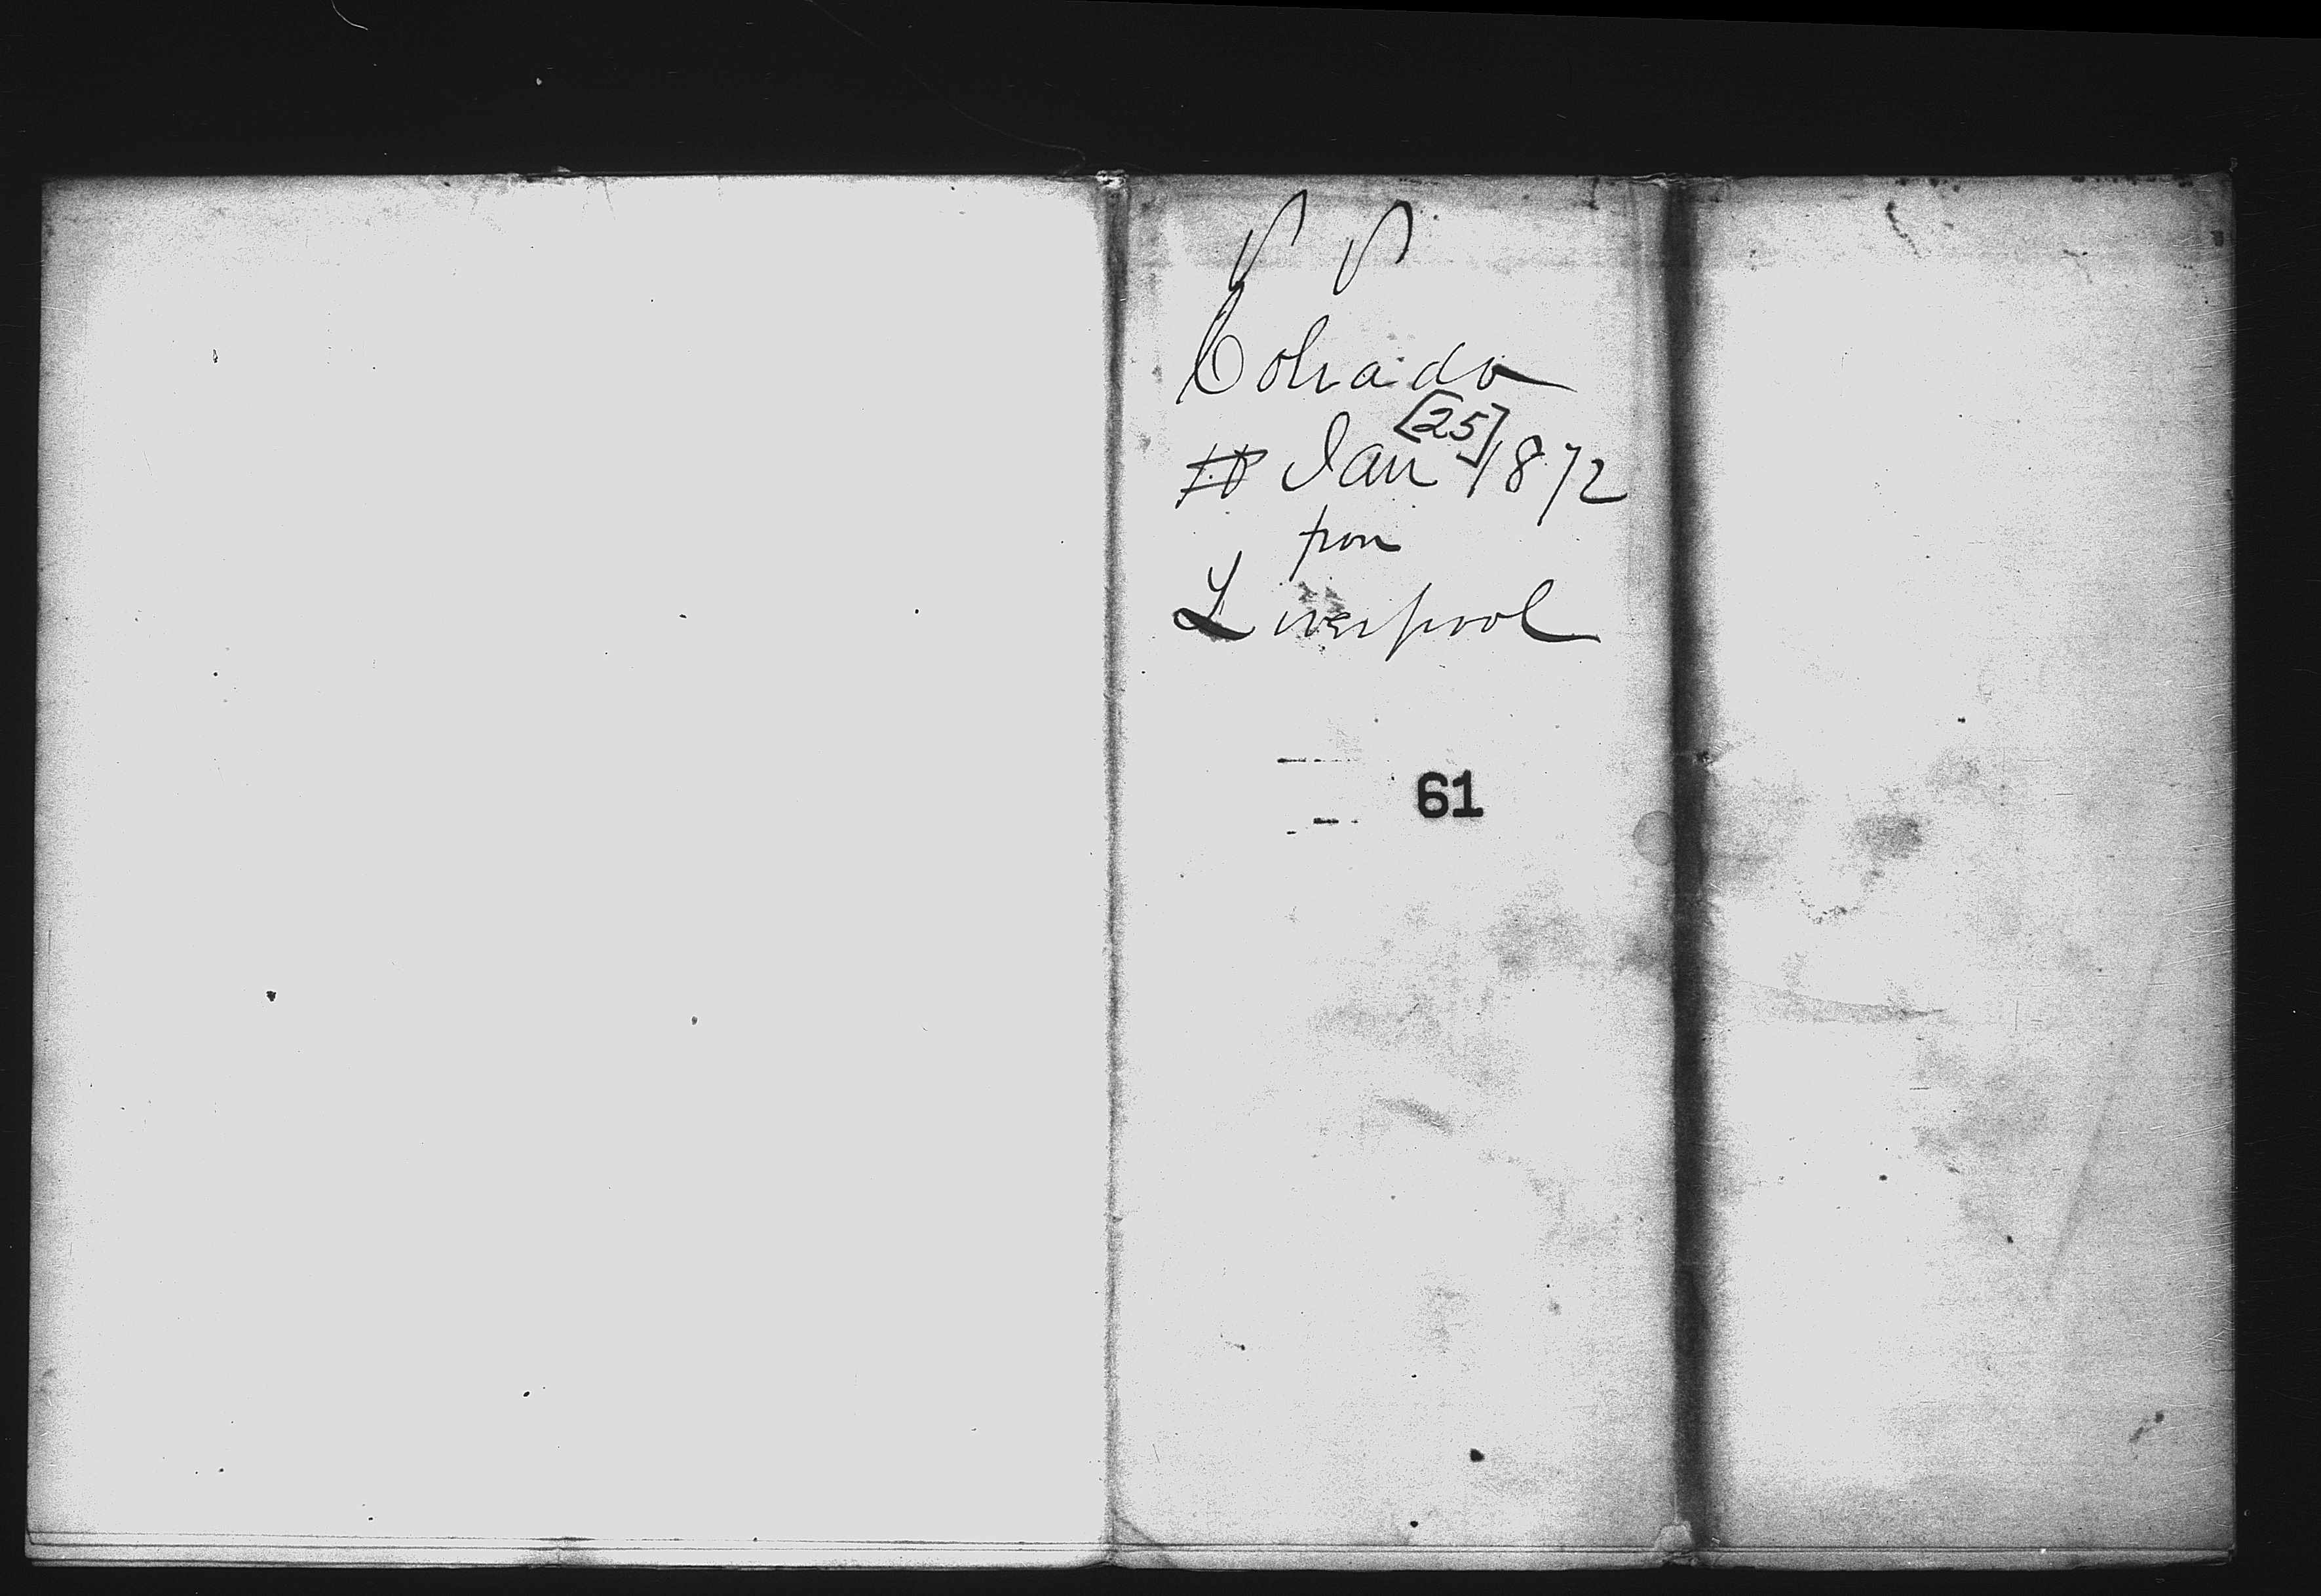 S S
Colorado
[25]
# Jan 1872
from
Liverpool
61